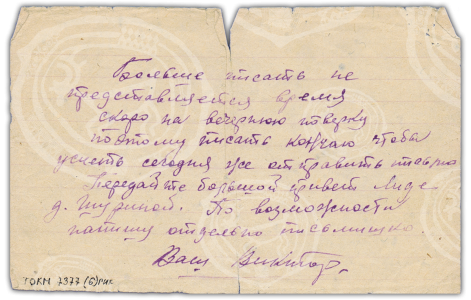 Больше писать не
представляется время
скоро на вечернюю поверку
поэтому писать кончаю чтобы
успеть сегодня же отправить письмо
Передайте большой привет Лиде
д. Шуриной. По возможности
напишу отдельно письмишко.
Ваш Виктор.
ТОКМ 7377(6)рис